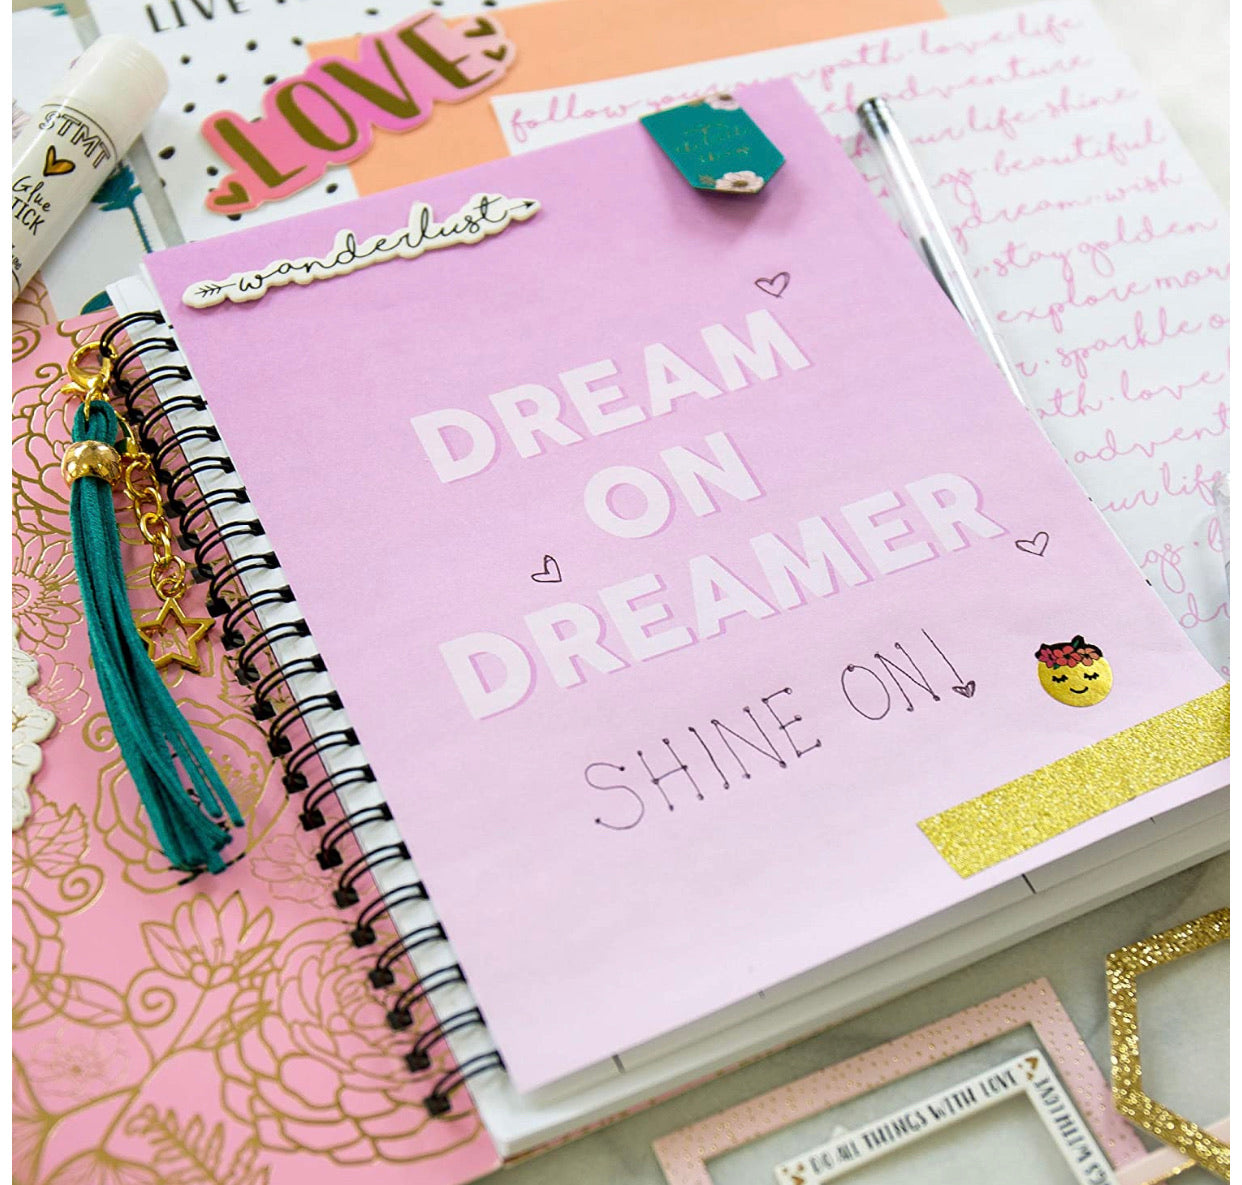 LIVE
LOVE
STMT
Glue
STICK
wanderlust
follow your own path · love life
adventure
your life · shine
beautiful
dream · wish
stay golden
explore more
sparkle
path · love
adventure
your life
DREAM
ON
DREAMER
SHINE ON!
DO ALL THINGS WITH LOVE
THINGS WITH LOVE